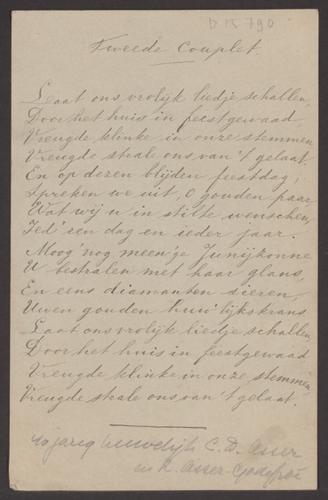 D 15 790
Tweede Couplet.
Laat ons vrolijk liedje schallen,
Door het huis in feestgewaad
Vreugde klinke in onze stemmen
Vreugde strale ons van 't gelaat
En op dezen blijden feestdag
Spreken we uit, O gouden paar,
Wat wij u in stilte wenschen,
Ied'ren dag en ieder jaar.
Moog' nog meen'ge Junijzonne
U bestralen met haar glans,
En eens diamanten sieren,
Uwen gouden huw'lijkskrans.
Laat ons vrolijk liedje schallen,
Door het huis in feestgewaad
Vreugde klinke in onze stemmen,
Vreugde strale ons van 't gelaat.
jarig huwelijk C. D. Asser
en R. Asser-Godefroi